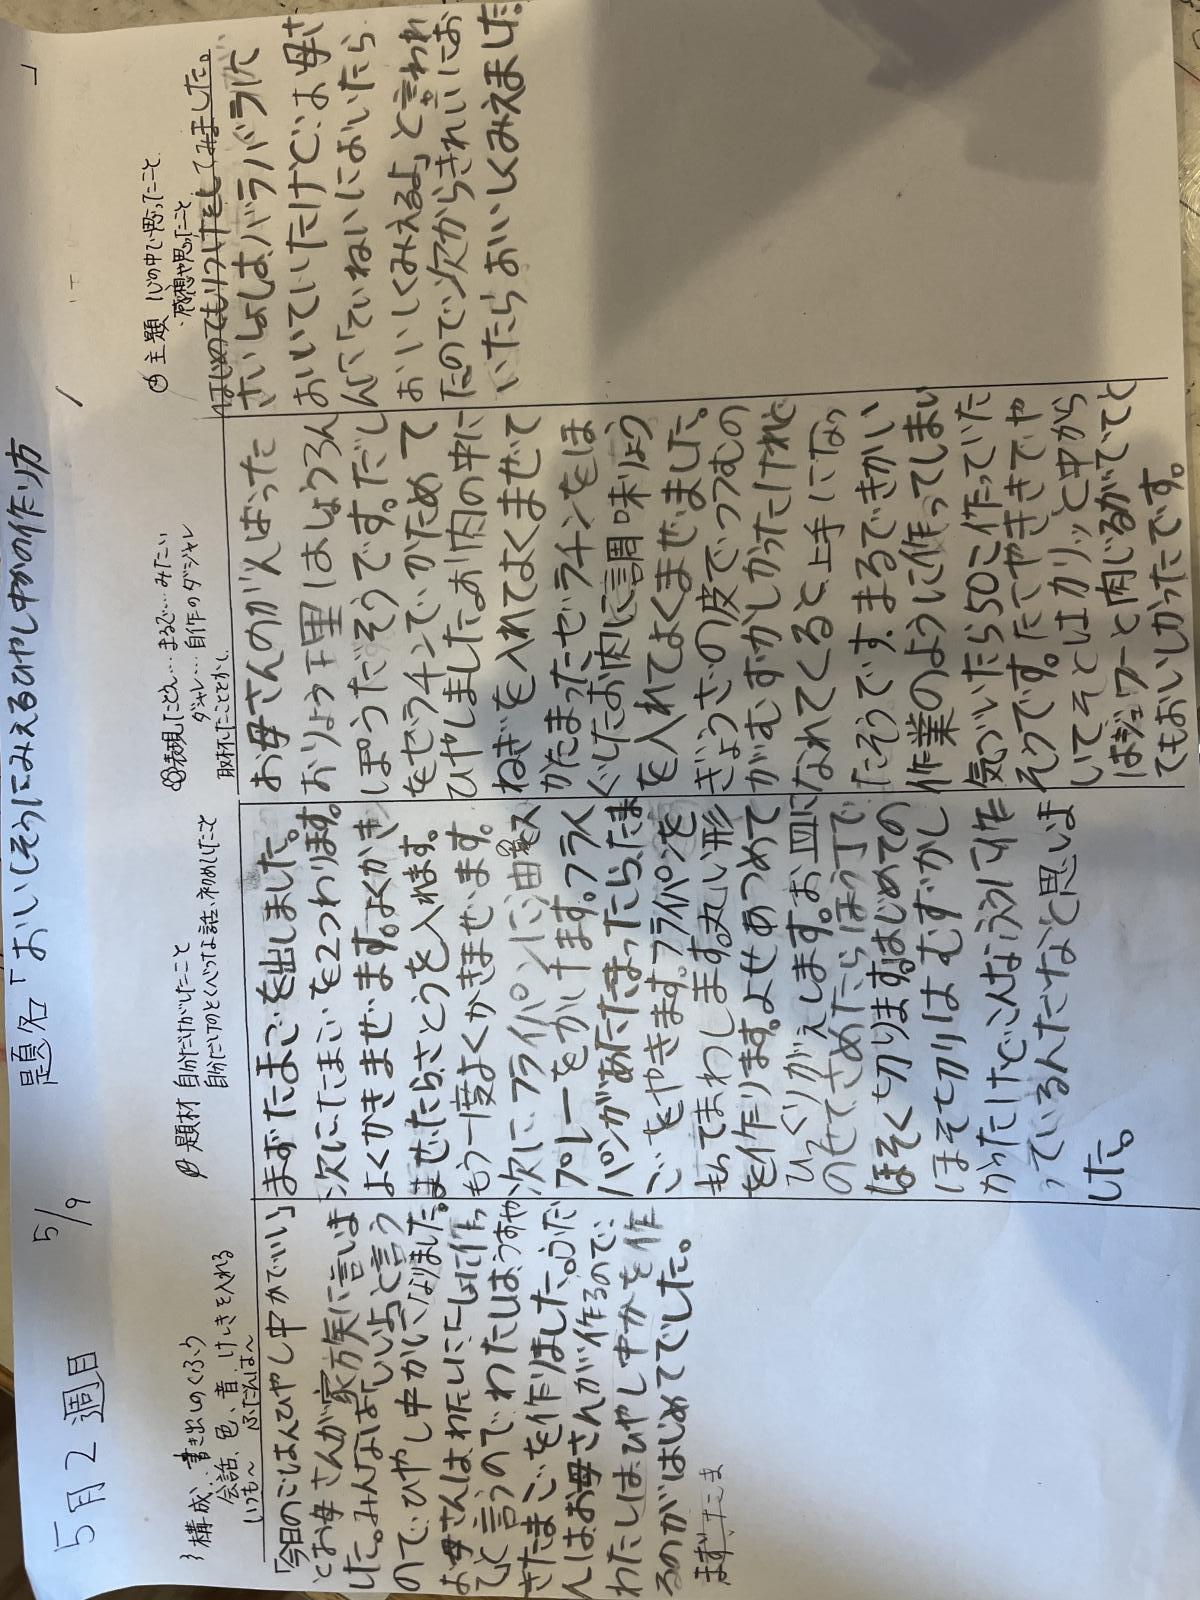 5月2週目
5/9
題名「おいしそうにみえるひやし中かの作り方
」
構成…書き出しのくふう
会話、色、音、けしきを入れる
いつも〜 ふだんは〜
「今日のごはんひやし中かでいい」
とお母さんが家族に言いま
した。みんなは「いいよ」と言う
ので、ひやし中かになりました。
お母さんはわたしに「いっしょに作っ
て」と言うので、わたしは、うすや
きたまごを作りました。ふだ
んはお母さんが作るので、
わたしは、ひやし中かを作
るのがはじめてでした。
まず、たま
題材 自分だけがしたこと
自分だけのとくべつな話、初めしたこと
まずたまごを出しました。
次に、たまごを2つわります。
よくかきまぜます。よくかき
まぜたら、さとうを入れます。
もう一度よくかきまぜます。
次に、フライパンに油のス
プレーをかけます。フライ
パンがあたたまったら、たま
ごをやきます。フライパンを
もってまわします。丸い形
を作ります。よせあつめて
ひっくりがえします。お皿に
のせて、さめたらほう丁で
ほそく切ります。はじめての
ほそ切りは、むずかし
かったけど、こんなふうに作
っているんだなと思いま
した。
表現…たとえ…まるで…みたい
ダジャレ…自作のダジャレ
取材…たことがし
お母さんのがんばった
おりょう理はしょうろん
ぽうだそうです。だし
をゼラチンでかためて
ひやしました。お肉の中に
ねぎを入れてよくまぜて
かたまったゼラチンをほ
ぐしたお肉に調味りょう
を入れてよくまぜました。
ぎょうざの皮でつつむの
がむずかしかったけれど
なれてくると上手になっ
たそうです。まるできかい
作業のように作ってしまい
気づいたら50こ作っていた
そうです。たこやききでや
いてそとはカリッと中から
はジュワーと肉じるがでてと
てもおいしかったです。
主題 心の中で思ったこと
・感想や思ったこと
はじめてもりつけをしてみました。
さいしょは、バラバラに
おいていたけど、お母さ
んに「ていねいにおいたら
おいしくみえるよ」と言われ
たので、次からきれいにお
いたらおいしくみえました。